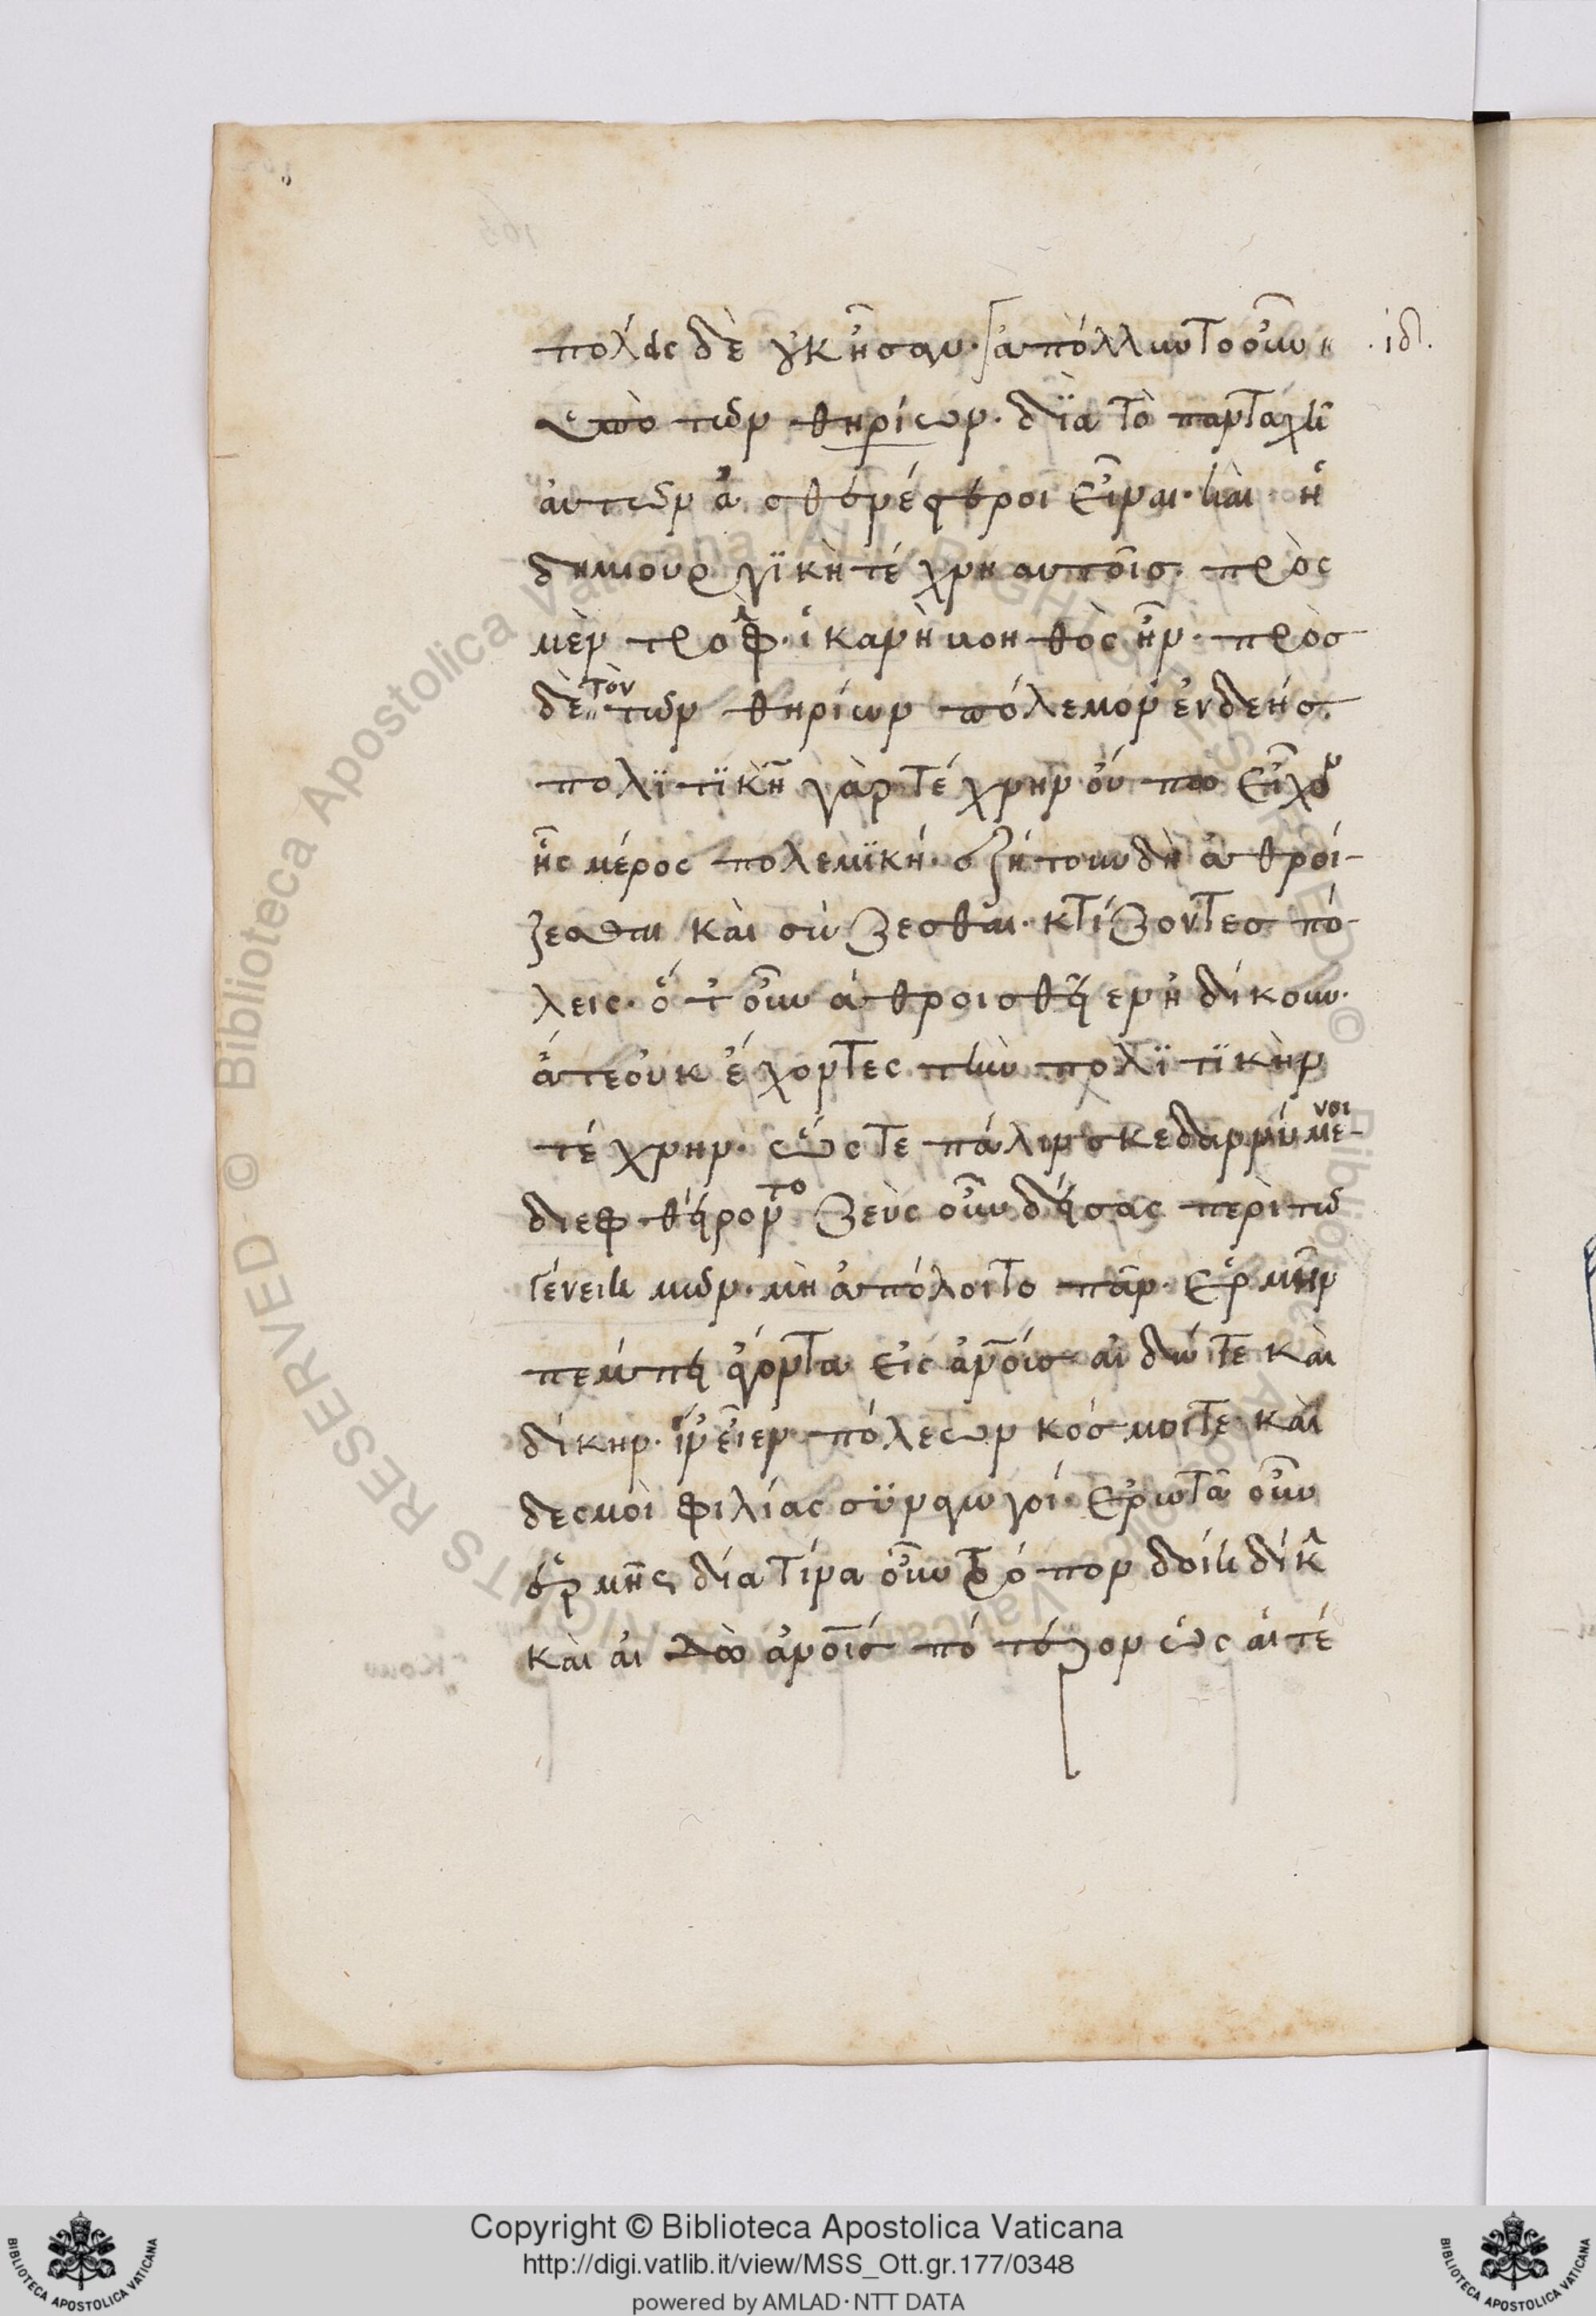 πόλεις δὲ οὐκ ἦσαν· ἀπόλλυντο οὖν ιδ.
ὑπὸ τῶν θηρίων. διὰ τὸ πανταχῇ
αὐτῶν ἀσθενέστεροι εἶναι. καὶ ἡ
δημιουργϊκὴ τέχνη αυτοῖς. πρὸς
μὲν τροφὴν ἱκανὴ βοηθὸς ἦν. πρὸς
δὲ τὸν τῶν θηρίων πόλεμον ἐνδεής.
πολϊτϊκὴν γὰρ τέχνην οὔπω εἶχον
ἧς μέρος πολεμϊκή. ἐζήτουν δὴ ἀθροί-
ζεσθαι καὶ σώζεσθαι. κτίζοντες πό-
λεις. ὅτ οὖν ἀθροισθεῖεν ἠδίκουν.
ἅτε οὐκ ἔχοντες τὴν πολϊτϊκὴν
τέχνην. ὥστε πάλιν σκεδαννύμενοι
διεφθείροντο Ζεὺς οὖν δείσας περὶ τῷ
γένει ἡμῶν. μὴ ἀπόλοιτο πᾶν. Ἑρμῆν
πέμπει ἄγοντα εἰς ἀνοῖς αἰδῶ τε καὶ
δίκην. ἵν εἶεν πόλεων κόσμοι τε καὶ
δεσμοὶ φιλίας συναγωγοί. Ἐρωτᾷ οὖν
Ἑρμῆς δία τίνα οὖν τρόπον δοίη δίκην
καὶ αἰδῶ ἀνοῖς πότερον ὡς αἱ τέ
Copyright © Biblioteca Apostolica Vaticana
http://digi.vatlib.it/view/MSS_Ott.gr.177/0348
powered by AMLAD·NTT DATA